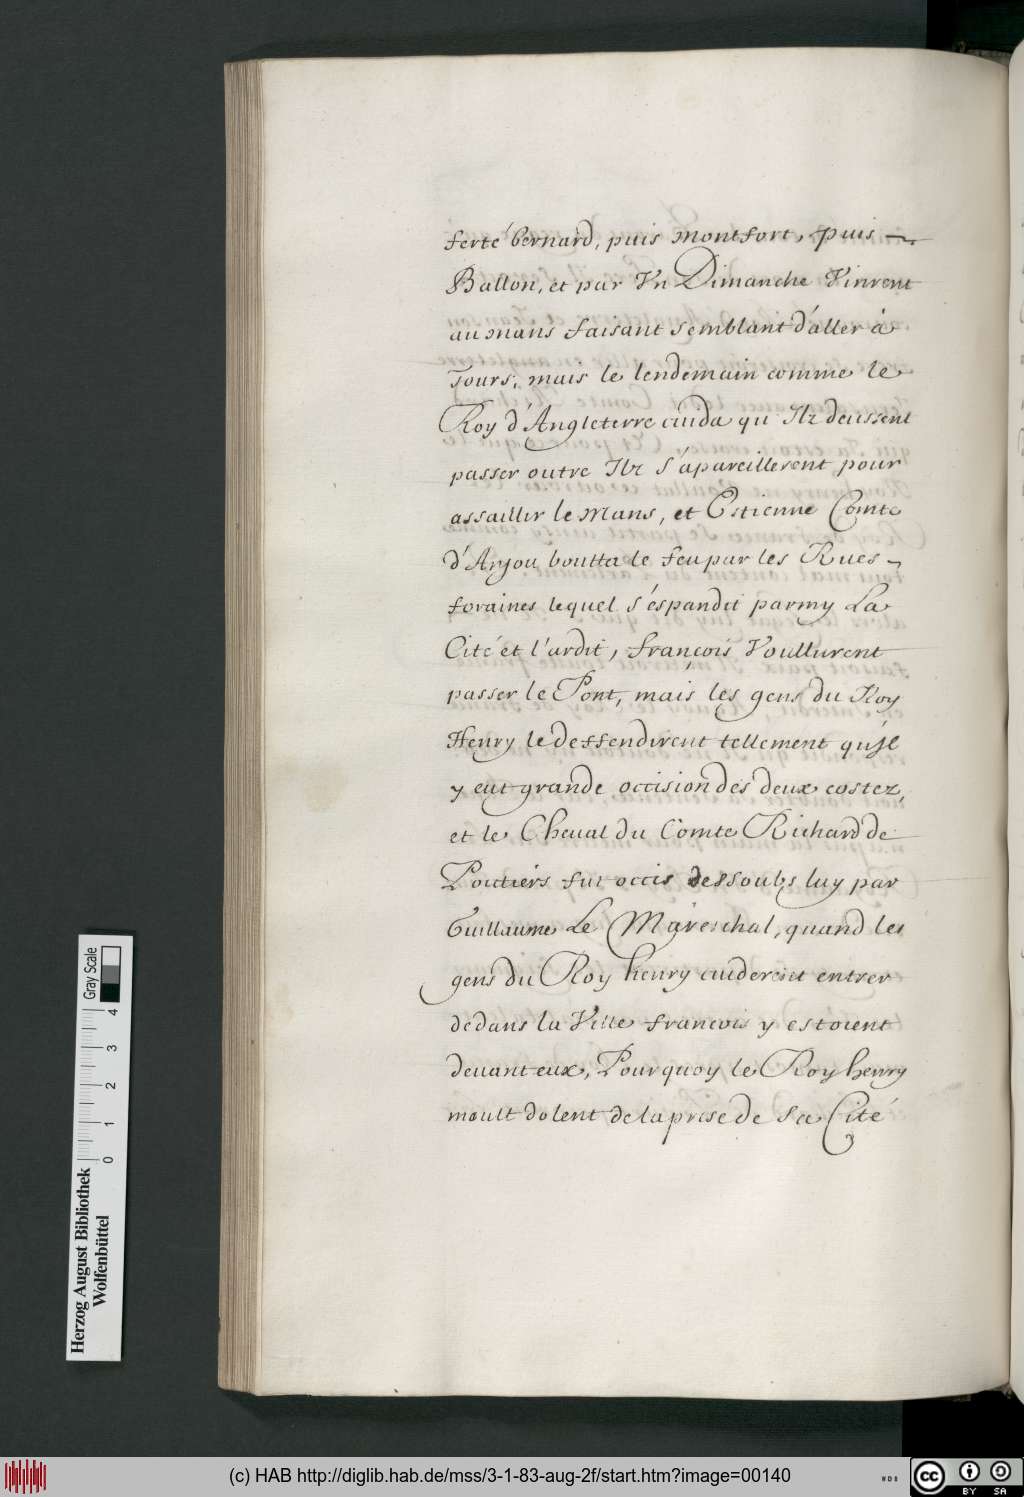 ferté bernard, puis montfort, puis
Ballon, et par Vn Dimanche Vinrent
au mans faisant semblant d'aller à
Tours, mais le lendemain comme le
Roy d'Angleterre cuida qu'Ilz deussent
passer outre Ilz s'apareillerent pour
assaillir le Mans, et Estienne Comte
d'Anjou boutta le feu par les Rues
foraines lequel s'espandit parmy La
Cité et l'ardit, françois Voullurent
passer le Pont, mais les gens du Roy
Henry le deffendirent tellement qu'Jl
y eut grande occision des deux costez,
et le Cheval du Comte Richard de
Poitiers fut occis dessoubs luy par
Guillaume Le Mareschal, quand les
gens du Roy henry cuiderent entrer
dedans la Ville françois y estoient
deuant eux, Pourquoy le Roy henry
moult dolent de la prise de sa Cité
Gray Scale
0 1 2 3 4
Herzog August Bibliothek
Wolfenbüttel
(c) HAB http://diglib.hab.de/mss/3-1-83-aug-2f/start.htm?image=00140
cc BY SA